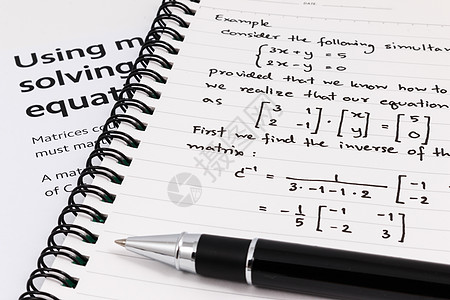 Using m
solving
equat
Matrices co
must ma
A mat
of C
DATE
Example
Consider the following simultan
{3x + y = 5
2x - y = 0
provided that we know how to
we realize that our equation
as [3 1
2 -1] . [x
y] = [5
0]
First we find the inverse of th
matrix :
C⁻¹ = 1/(3·-1-1·2) [-1 -1
-2
= -1/5 [-1 -1
-2 3]